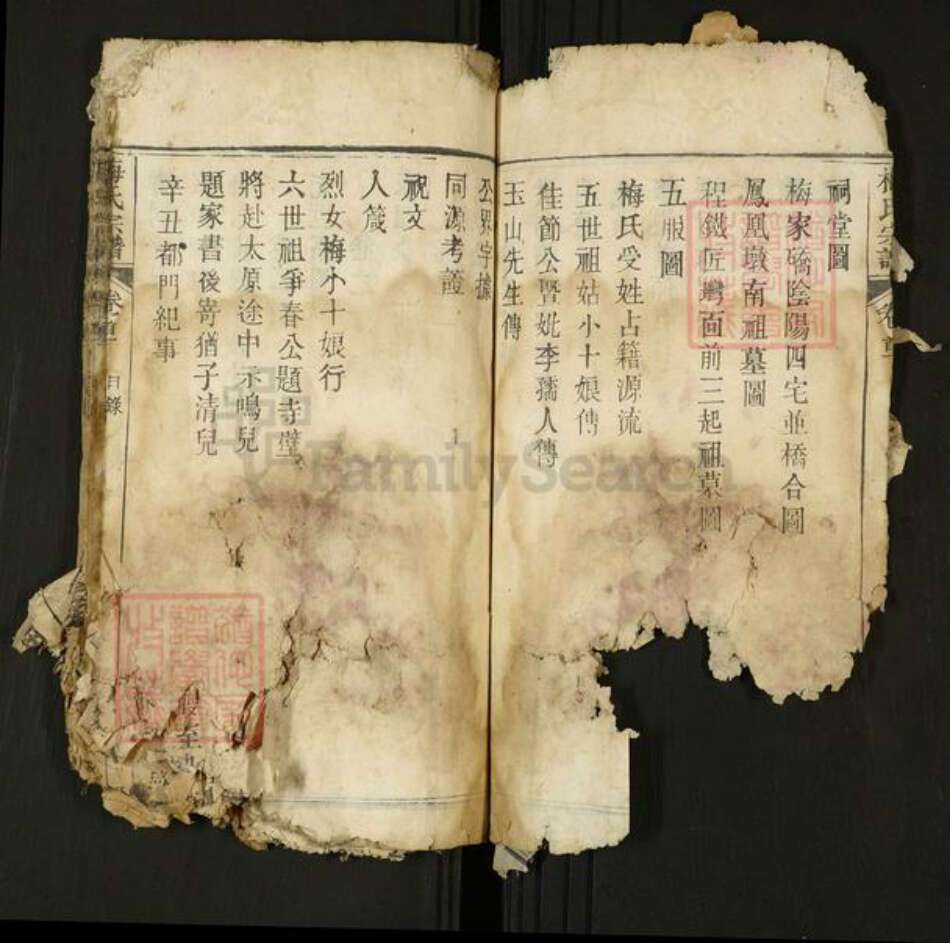 祠堂圖
梅家礄陰陽四宅並橋合圖
鳳凰墩南祖墓圖
程鐵匠灣面前三起祖墓圖
五服圖
梅氏受姓占籍源流
五世祖姑小十娘傳
佳節公暨妣李孺人傳
玉山先生傳
公界字據
同源考證
祝文
人箴
烈女梅小十娘行
六世祖爭春公題寺壁
將赴太原途中示鳴兒
題家書後寄猶子清兒
辛丑都門紀事
梅氏宗譜 卷首 目錄
FamilySearch